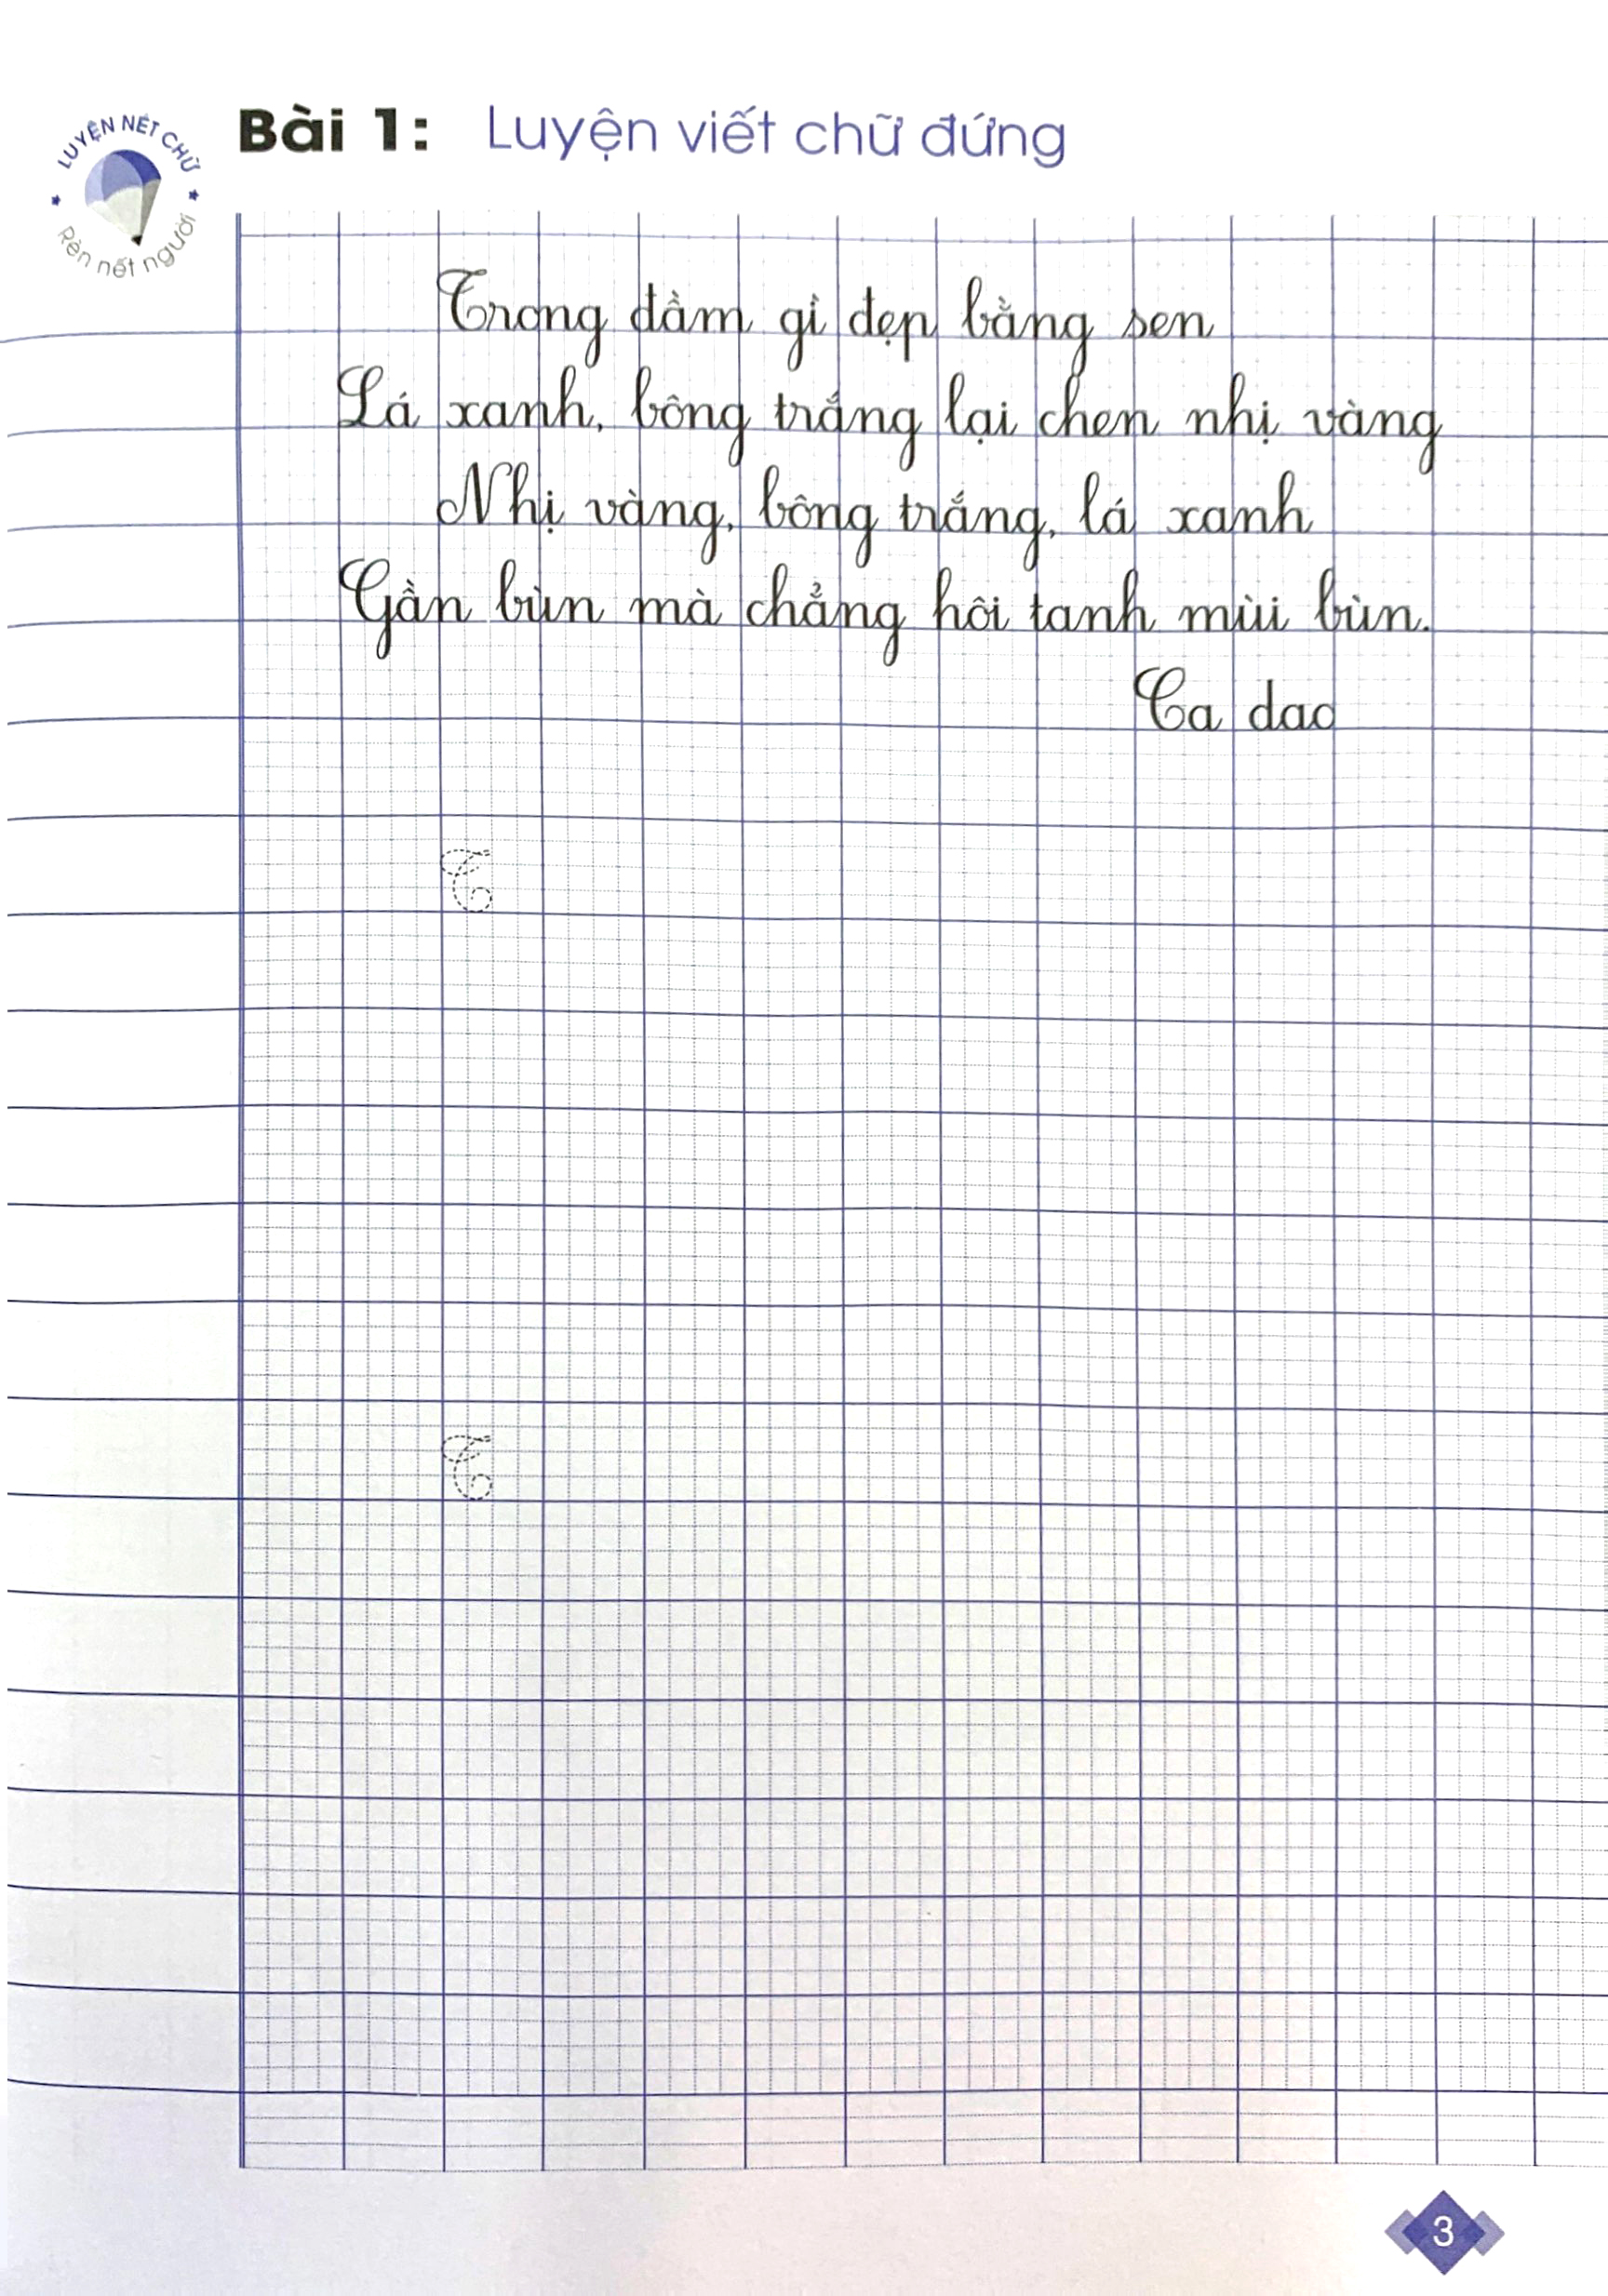 LUYỆN NÉT CHỮ
Rèn nết người
Bài 1: Luyện viết chữ đứng
Trong đầm gì đẹp bằng sen
Lá xanh, bông trắng lại chen nhị vàng
Nhị vàng, bông trắng, lá xanh
Gần bùn mà chẳng hôi tanh mùi bùn.
Ca dao
T
T
3